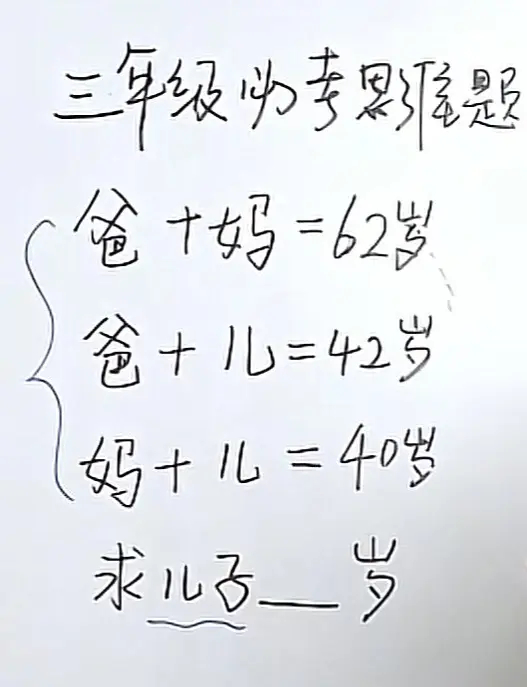 三年级必考思维题
爸+妈=62岁
爸+儿=42岁
妈+儿=40岁
求儿子__岁